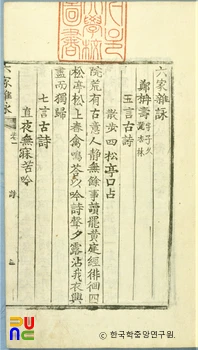 六家雜詠
鄭枏壽 字子久 號杏林
五言古詩
散步四松亭口占
院荒有古意人静無餘事讀罷黃庭經徘徊四
松亭松上春禽鳴荅以吟詩聲夕露沾我衣興
盡而獨歸
七言古詩
直夜無寐苦吟
六家雜詠
圖書
한국학중앙연구원.